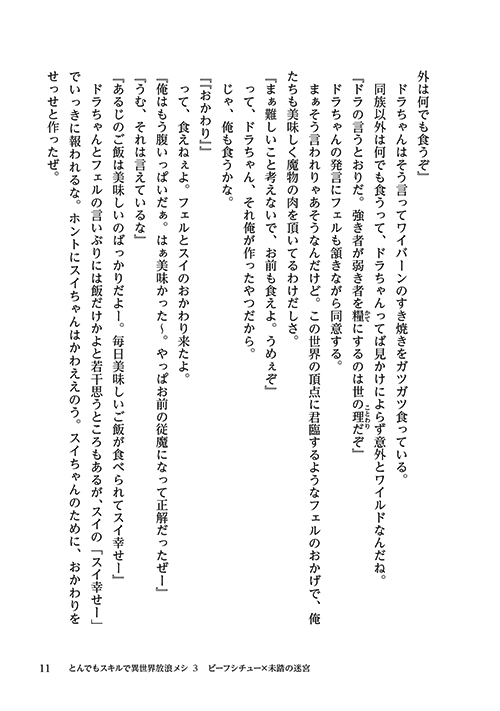 外は何でも食うぞ』
ドラちゃんはそう言ってワイバーンのすき焼きをガツガツ食っている。
同族以外は何でも食うって、ドラちゃんってば見かけによらず意外とワイルドなんだね。
『ドラの言うとおりだ。強き者が弱き者を糧にするのは世の理だぞ』
かて
ことわり
ドラちゃんの発言にフェルも頷きながら同意する。
まぁそう言われりゃあそうなんだけど。この世界の頂点に君臨するようなフェルのおかげで、俺
たちも美味しく魔物の肉を頂いてるわけだしさ。
『まぁ難しいこと考えないで、お前も食えよ。うめぇぞ』
って、ドラちゃん、それ俺が作ったやつだから。
じゃ、俺も食うかな。
『『おかわり』』
って、食えねぇよ。フェルとスイのおかわり来たよ。
『俺はもう腹いっぱいだぁ。はぁ美味かった～。やっぱお前の従魔になって正解だったぜー』
『うむ、それは言えているな』
『あるじのご飯は美味しいのばっかりだよー。毎日美味しいご飯が食べられてスイ幸せー』
ドラちゃんとフェルの言いぶりには飯だけかよと若干思うところもあるが、スイの「スイ幸せー」
でいっきに報われるな。ホントにスイちゃんはかわええのう。スイちゃんのために、おかわりを
せっせと作ったぜ。
11 とんでもスキルで異世界放浪メシ 3 ビーフシチュー×未踏の迷宮